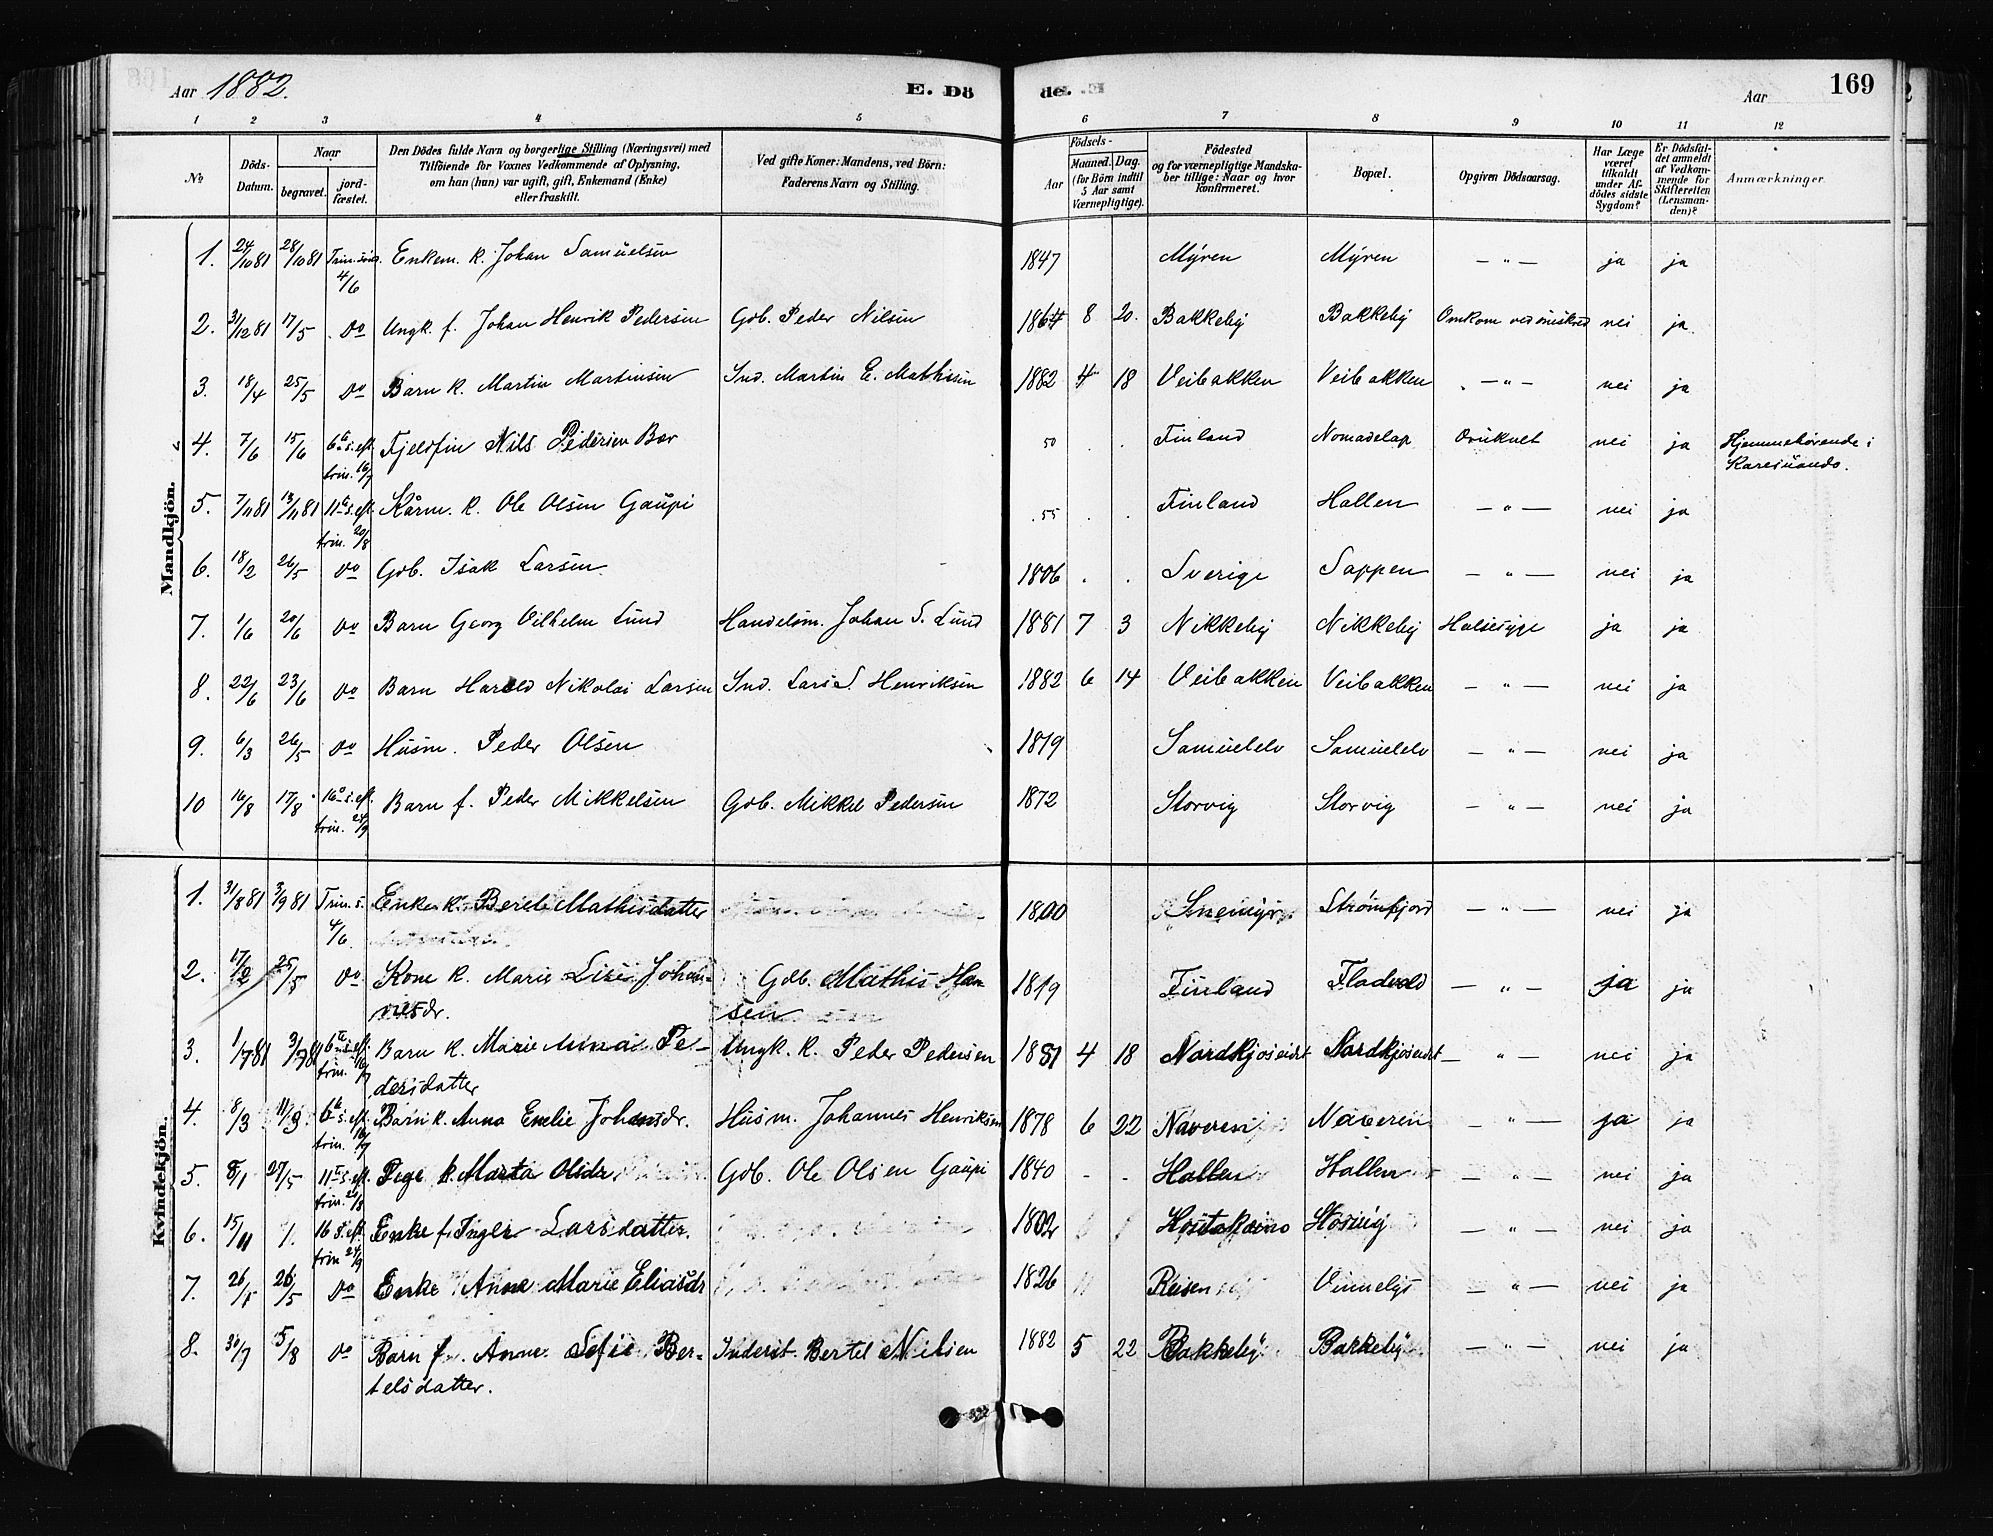 Aar 1882. E. Dö de. Aar 169
1 2 3 4 5 6 7 8 9 10 11 12
№ Döds-Datum. Naar begravet. jord-fæstet. Den Dödes fulde Navn og borgerlige Stilling (Næringsvei) med Tilföiende for Voxnes Vedkommende af Oplysning, om han (hun) var ugift, gift, Enkemand (Enke) eller fraskilt. Ved gifte Koner: Mandens, ved Börn: Faderens Navn og Stilling. Födsels- Aar Maaned. Dag. (for Börn indtil 5 Aar samt Værnepligtige). Födested og for værnepligtige Mandska-ber tillige: Naar og hvor konfirmeret. Bopæl. Opgiven Dödsaarsag. Har Læge været tilkaldt under Af-dödes sidste Sygdom? Er Dödsfal-det anmeldt af Vedkom-mende for Skifteretten (Lensman-den)? Anmærkninger.
Mandkjön.
1. 24/10 81 28/10 81 Trin. 4/6 Enkem. k. Johan Samuelsen 1847 Myren Myren — " — ja ja
2. 31/12 81 17/5 do Ungk. f. Johan Henrik Pedersen Gdb. Peder Nilsen 1864 8 20. Bakkeby Bakkeby Omkom ved nei ja
3. 18/4 25/5 do Barn k. Martin Martinsen Ind. Martin E. Mathisen 1882 4 18 Veibakken Veibakken — " — nei ja
4. 7/6 15/6 6te s. eft. trin. 16/7 Fjeldfin Nils Pedersen Bær 50 Finland Nomadelap Druknet nei ja Hjemmehörende i
Karesuando.
5. 7/11 81 13/11 81 11te s. eft. trin. 20/8 Kårm. k. Ole Olsen Gaupi 55 Finland Hallen — " — nei ja
6. 18/2 26/5 do Gdb. Isak Larsen 1806 Sverige Sappen — " — nei ja
7. 1/6 20/6 do Barn Georg Vilhelm Lund Handelsm. Johan S. Lund 1881 7 3 Nikkeby Nikkeby Halsesyge ja ja
8. 22/6 23/6 do Barn Harald Nikolai Larsen Ind. Lars S. Henriksen 1882 6 14 Veibakken Veibakken — " — nei ja
9. 6/3 26/5 do Husm. Peder Olsen 1819 Samuelelv Samuelelv — " — nei ja
10 16/8 17/8 16de s. eft. trin. 24/9 Barn f. Peder Mikkelsen Gdb. Mikkel Pedersen 1872 Storvig Storvig — " — nei ja
Kvindekjön.
1. 31/8 81 3/9 81 Trin. s. 4/6. Enke k. Berit Mathisdatter 1800 Strömfjord — " — nei ja
2. 17/2 25/5 do Kone k. Marie Lise Johan- Gdb. Mathis Han- 1819 Finland Fladvold — " — ja ja
nesdr. sen
3. 1/7 81 3/7 81 6te s. eft. trin. 16/7 Barn k. Marie Anna Pe- Ungk. k. Peder Pedersen 1881 4 18 Nordkjoseidet Nordkjoseidet — " — nei ja
dersdatter
4. 8/3 11/3. 6te s. eft. trin. 16/7 Barn k. Anna Emelie Johansdr. Husm. Johannes Henriksen 1878 6 22 Naveren Naveren — " — ja ja
5. 8/1 27/5 11te s. eft. trin. 20/8 Pige k. Marta Olsdr Gdb. Ole Olsen Gaupi 1840 - - Hallen Hallen — " — nei ja
6. 15/11 /. 16 s. eft. trin 24/9 Enke f. Inger Larsdatter. 1802 Storvig — " — nei ja
7. 26/1 26/5 do Enke Anne Marie Eliasdr 1826 Reisen — " — nei ja
8. 30/7 5/8 do Barn f. Anne Sofie Ber- Inderst. Bertel Nilsen 1882 5 22 Bakkeby Bakkeby — " — nei ja
telsdatter.